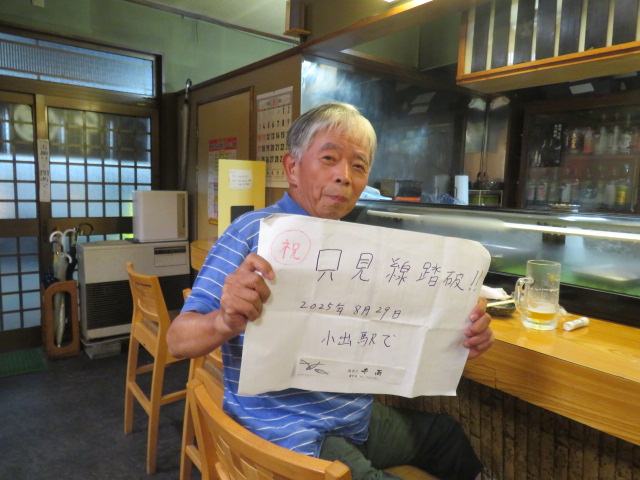 祝
只見線踏破!!
2025年8月29日
小出駅で